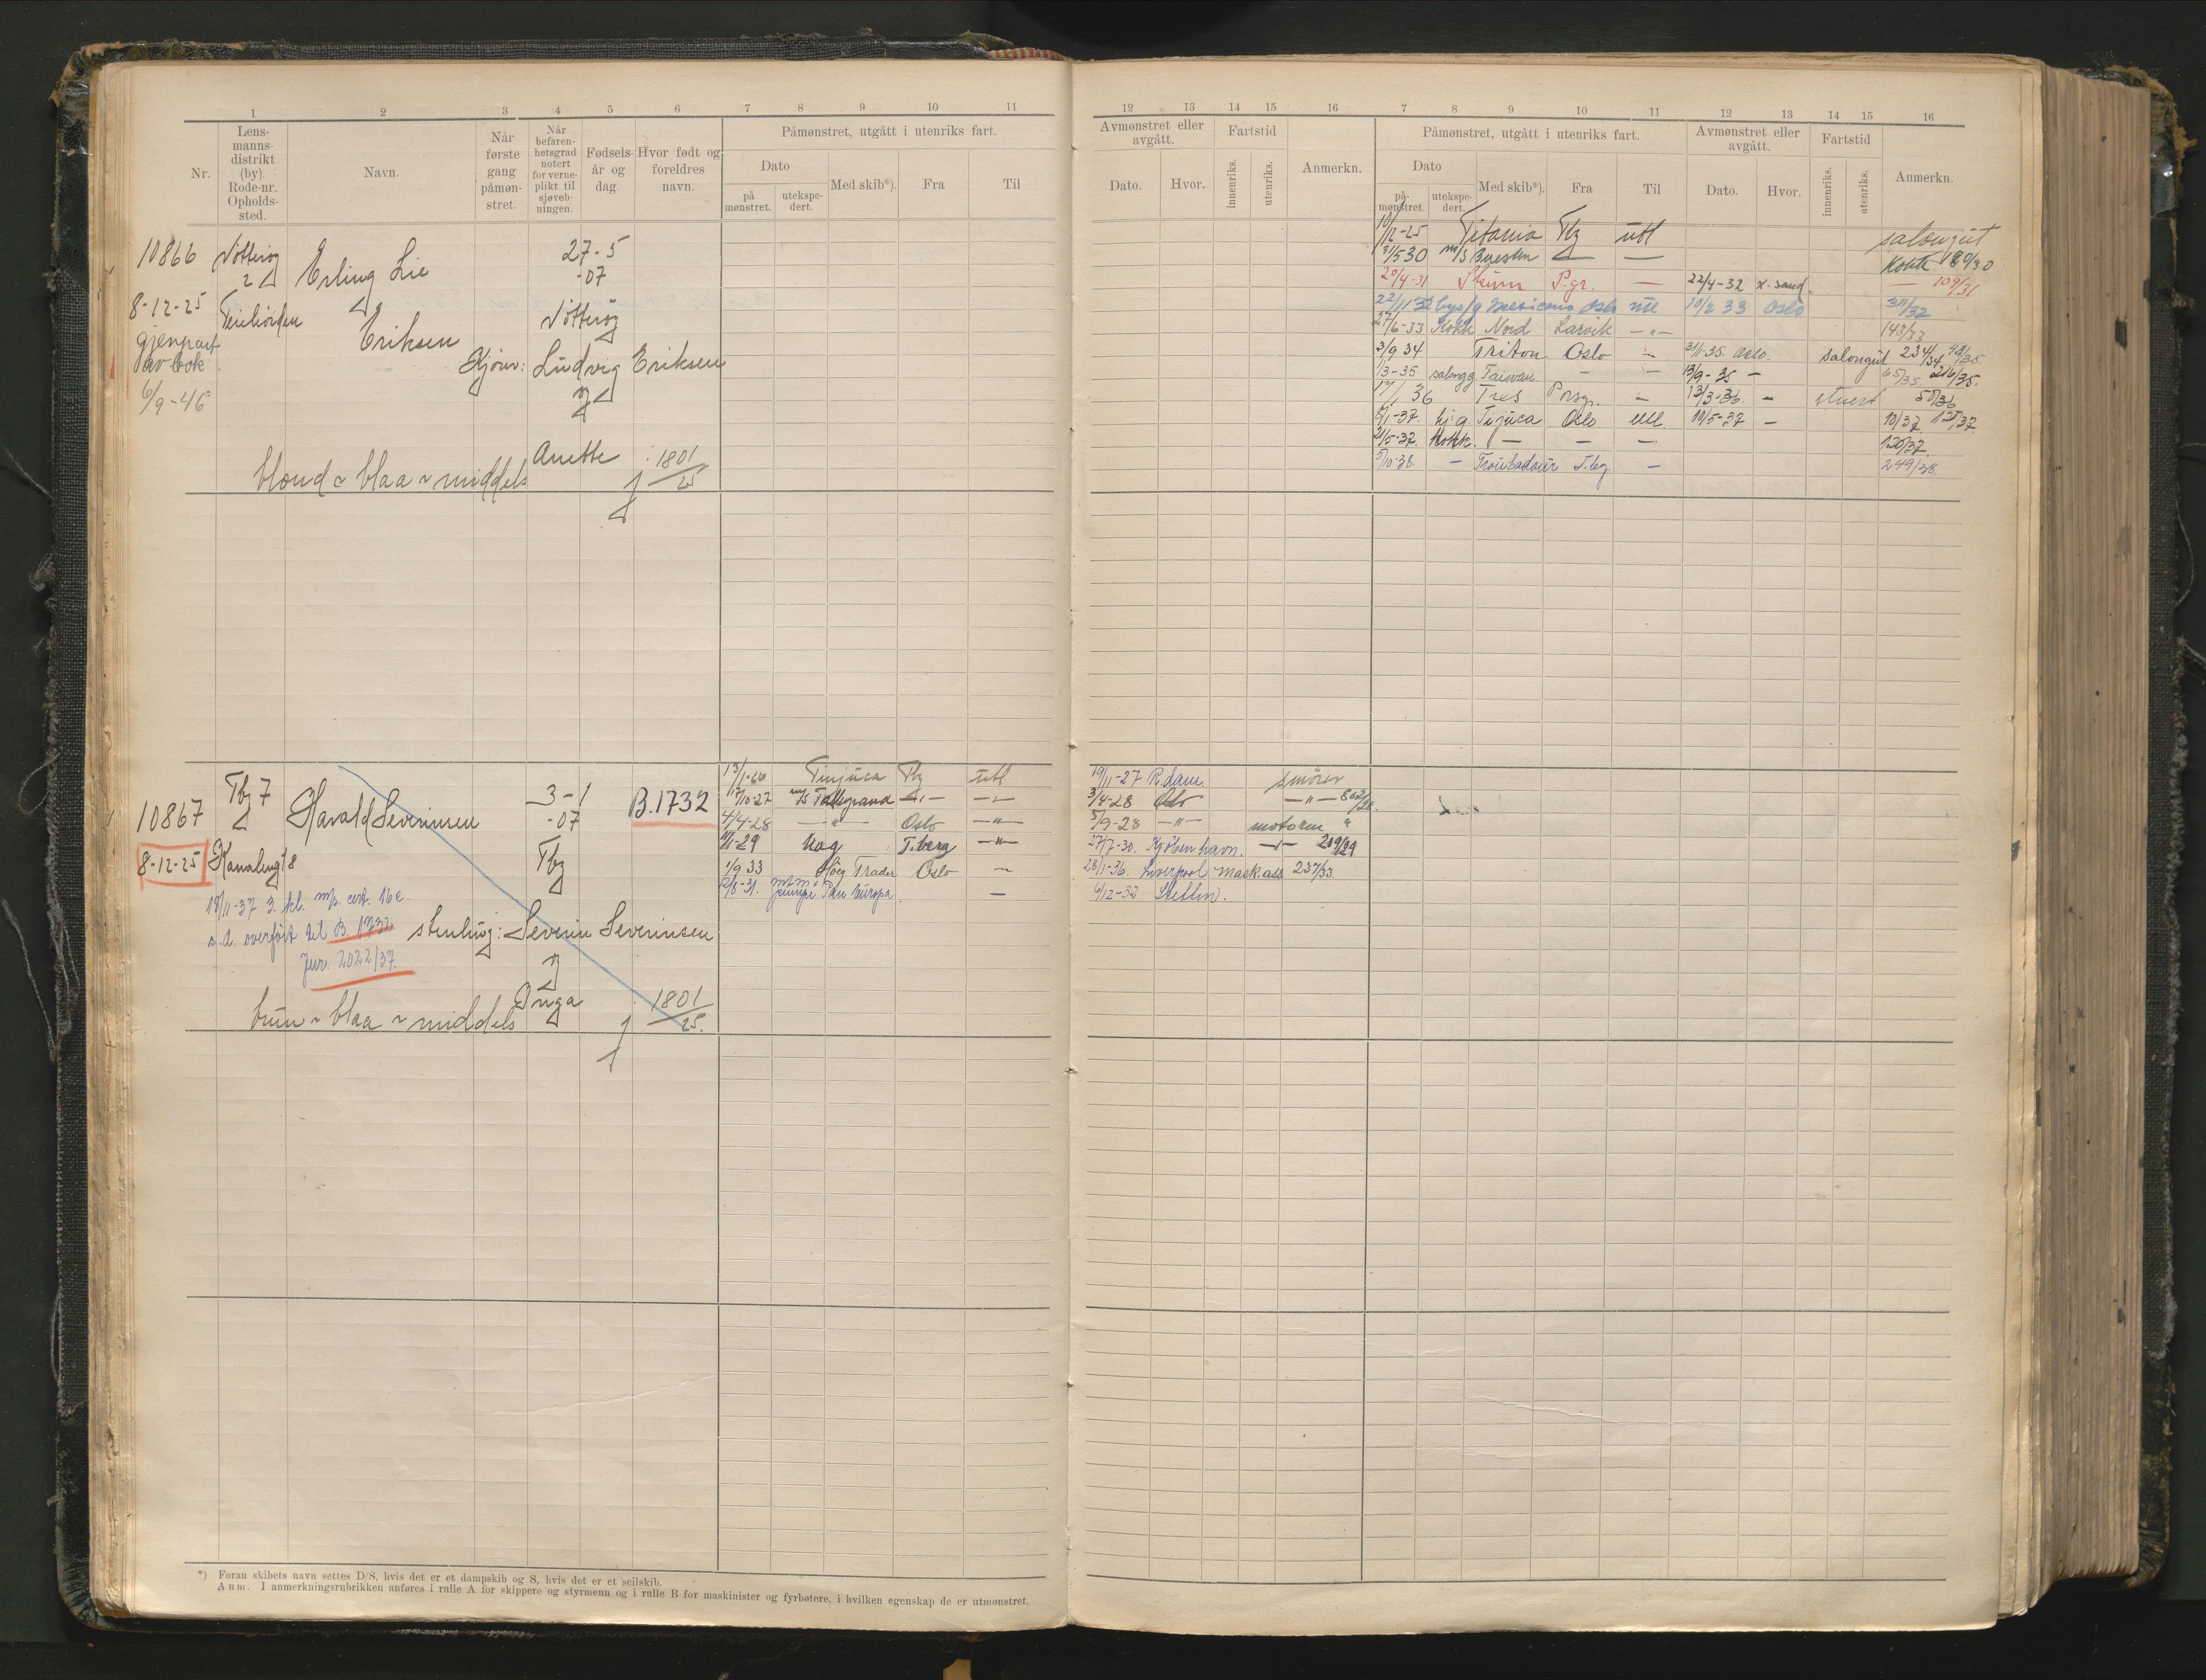 1 2 3 4 5 6 7 8 9 10 11
Nr.
Lens-
manns-
distrikt
(by).
Rode-nr.
Opholds-
sted.
Navn.
Når
første
gang
påmøn-
stret.
Når
befaren-
hetsgrad
notert
for verne-
plikt til
sjøveb-
ningen.
Fødsels-
år og
dag.
Hvor født og
foreldres
navn.
Påmønstret, utgått i utenriks fart.
Dato
på
mønstret.
utekspe-
dert.
Med skib*).
Fra
Til
10866 Nøtterøy 27-5
2 Erling Lie -07
8-12-25
Eriksen Nøtterøy
gjenpart
av bok
Ludvig Eriksen
6/9-46
Anette 1801/25
blond ~ blaa ~ middels
Tbg 7 3-1 B.1732
10867 Harald Severinsen -07
8-12-25 Tbg
18/11-37 3. kl. cert.
s.d. overført til B. 1732
Severin Severinsen
Jur. 2022/37.
Inga 1801/25.
brun ~ blaa ~ middels
13/1-26 Tinjuca Tbg utl
10-27 M/S Talleyrand -"- -"-
4/4-28 — " — Oslo -"-
11-29 Hag T.berg -"-
1/9 33 Höeg Trader Oslo —
12/8-31. Pan Europa —
*) Foran skibets navn settes D/S, hvis det er et dampskib og S, hvis det er et seilskib.
Anm. I anmerkningsrubrikken anføres i rulle A for skippere og styrmenn og i rulle B for maskinister og fyrbøtere, i hvilken egenskap de er utmønstret.
12 13 14 15 16 7 8 9 10 11 12 13 14 15 16
Avmønstret eller
avgått.
Dato. Hvor.
Fartstid
innenriks. utenriks.
Anmerkn.
Påmønstret, utgått i utenriks fart.
Dato
på-
mønstret.
utekspe-
dert.
Med skib*).
Fra
Til
Avmønstret eller
avgått.
Dato. Hvor.
Fartstid
innenriks. utenriks.
Anmerkn.
10/12-25 Titania Tbg utl salongut
31/5 30 M/S — — Kokk
20/4-31 P.gr. — 22/4-32 — 109/31
22/11 32 Mexicano Oslo 10/2 33 Oslo 311/32
27/6-33 Kokk Nord Larvik -"- 143/33
3/9 34 Triton Oslo — 3/1-35. Oslo. salongut 234/34
1/3-35 Taiwan — — 13/9-35 — 65/35 216/35.
17/1 36 Tres Porsgr. — 13/3-36 — stuert 50/36
5/1-37. Tijuca Oslo utl. 10/5-37 — 10/37.
21/5-37. Kokk. — — — 120/37.
5/10-38. — Troubadour T.bg. — 249/38
19/11-27 R.dam. smörer
3/4-28 Oslo -"-
5/9-28 -"- motorm "
27/7-30. Kjöbenhavn. -"- 219/29
28/1-36. Liverpool mask.ass 237/33.
6/12-32 Stettin.